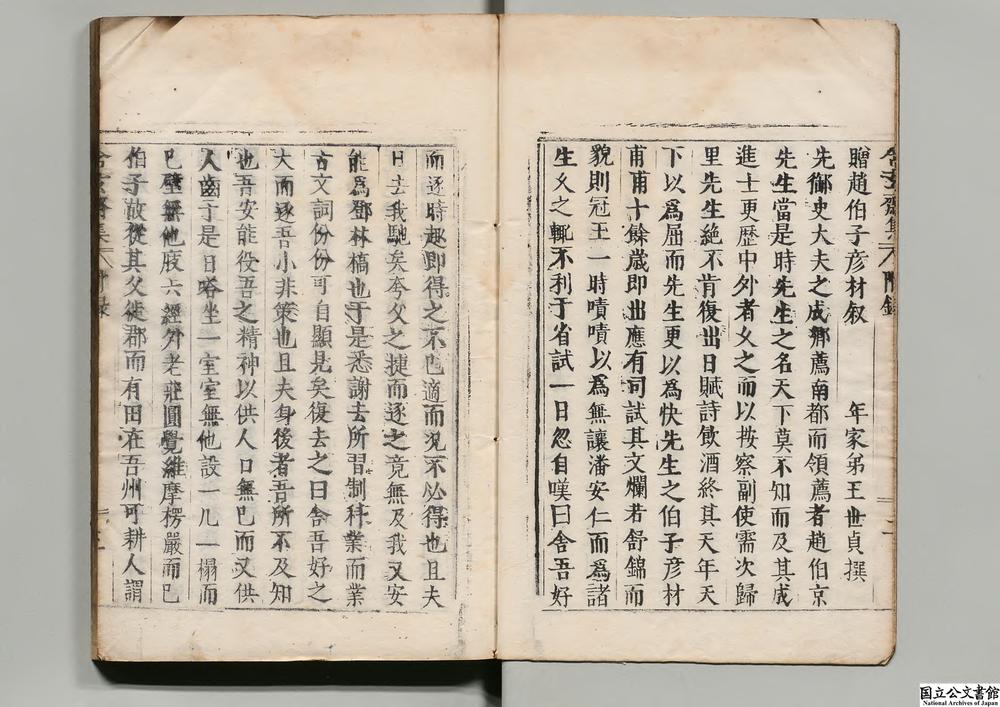 贈趙伯子彥材叙　　年家弟王世貞撰
先御史大夫之成鄉薦南都而領薦者趙伯京
先生當是時先生之名天下莫不知而及其成
進士更歷中外者久之而以按察副使需次歸
里先生絶不肯復出日賦詩飲酒終其天年天
下以爲屈而先生更以爲快先生之伯子彥材
甫甫十餘歲即出應有司試其文爛若舒錦而
貌則冠玉一時嘖嘖以爲無讓潘安仁而爲諸
生久之輒不利于省試一日忽自嘆曰舍吾好
而逐時趣即得之不巳適而况不必得也且夫
日去我馳矣夸父之捷而逐之竟無及我又安
能爲鄧林槁也于是悉謝去所習制科業而業
古文詞份份可自顯見矣復去之曰舍吾好之
大而逐吾小非策也且夫身後者吾所不及知
也吾安能役吾之精神以供人口無巳而又供
人齒于是日嗒坐一室室無他設一几一榻而
巳壁無他庋六經外老莊圓覺維摩楞嚴而巳
伯子故從其父徙郡而有田在吾州可耕人謂
舍玄齋集 附錄 一
国立公文書館
National Archives of Japan